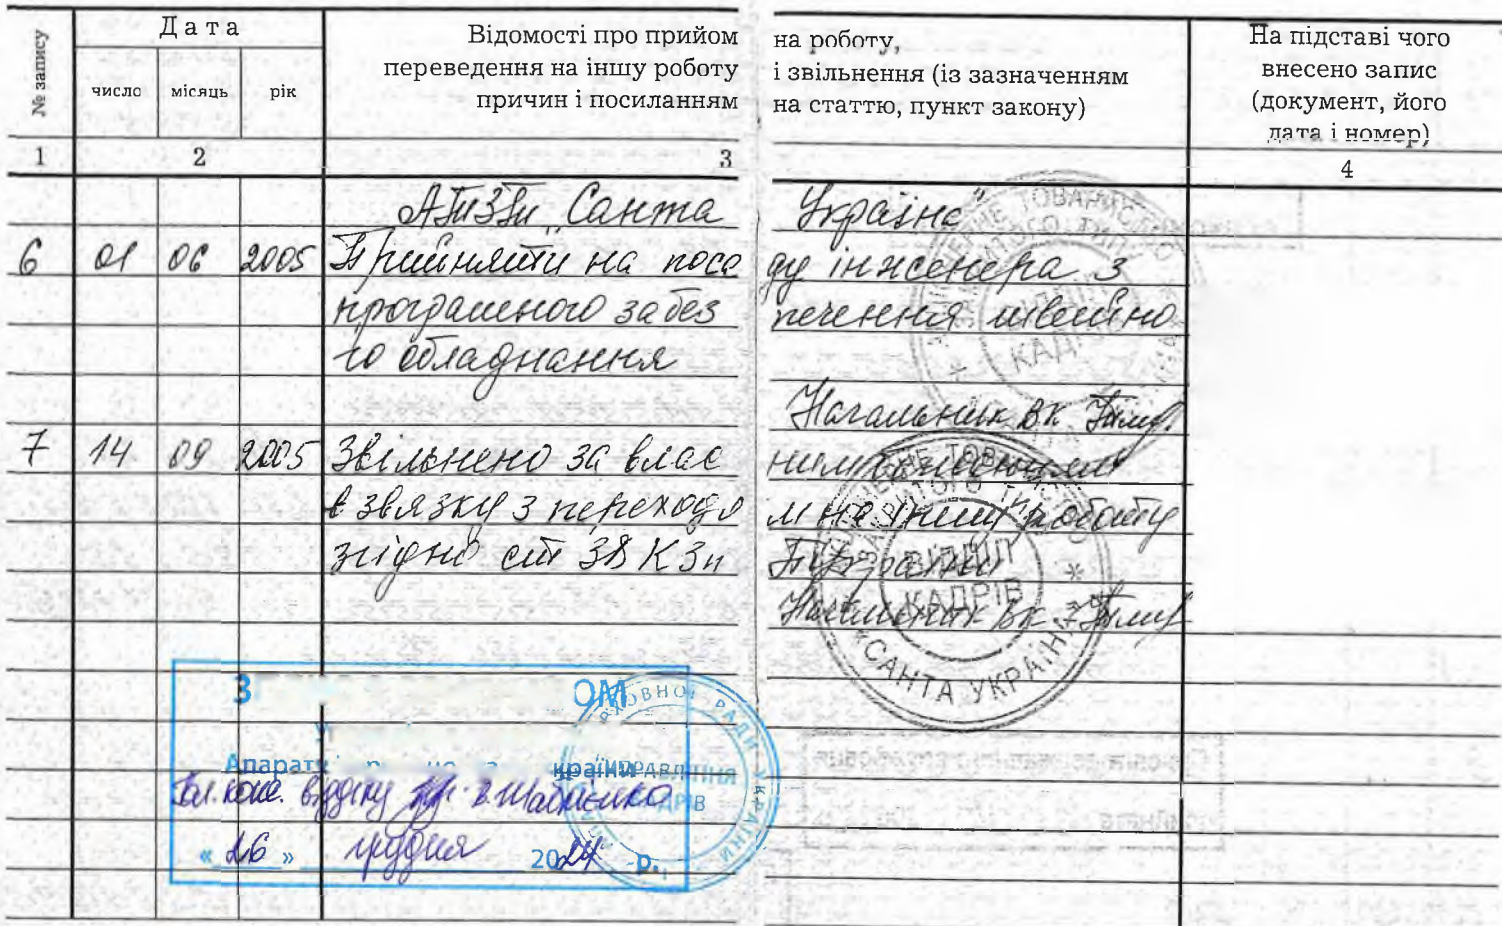 № запису
Дата
число місяць рік
Відомості про прийом на роботу,
переведення на іншу роботу і звільнення (із зазначенням
причин і посиланням на статтю, пункт закону)
На підставі чого
внесено запис
(документ, його
дата і номер)
1 2 3 4
"Санта Україна"
6 01 06 2005 Прийняти на посаду інженера з
програмного забезпечення швейно
го обладнання
Начальник ВК
7 14 09 2005 Звільнено за власним бажанням
в звязку з переходом на іншу роботу
згідно ст 38 КЗп
П України
Начальник ВК
ВІДДІЛ
КАДРІВ
САНТА УКРАЇНА
З ОМ
Апарату
Гол. конс. відділу
« 26 » грудня 2024 р.
ВЕРХОВНОЇ РАДИ УКРАЇНИ
УПРАВЛІННЯ
КАДРІВ